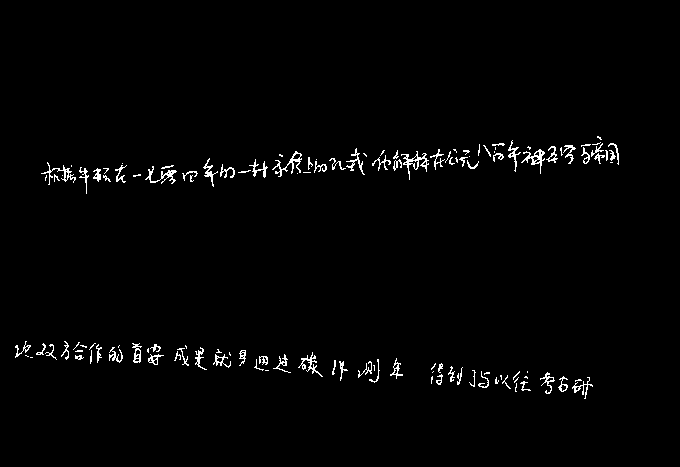 根据牛顿在一七零四年的一封手信上的公式他解释在公元八百年神圣罗马帝国
次双方合作的首要成果就是通过碳14测年 得到了与以往考古研